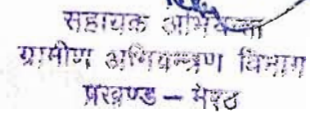 सहायक अभियन्ता
ग्रामीण अभियन्त्रण विभाग
प्रखण्ड - मेरठ